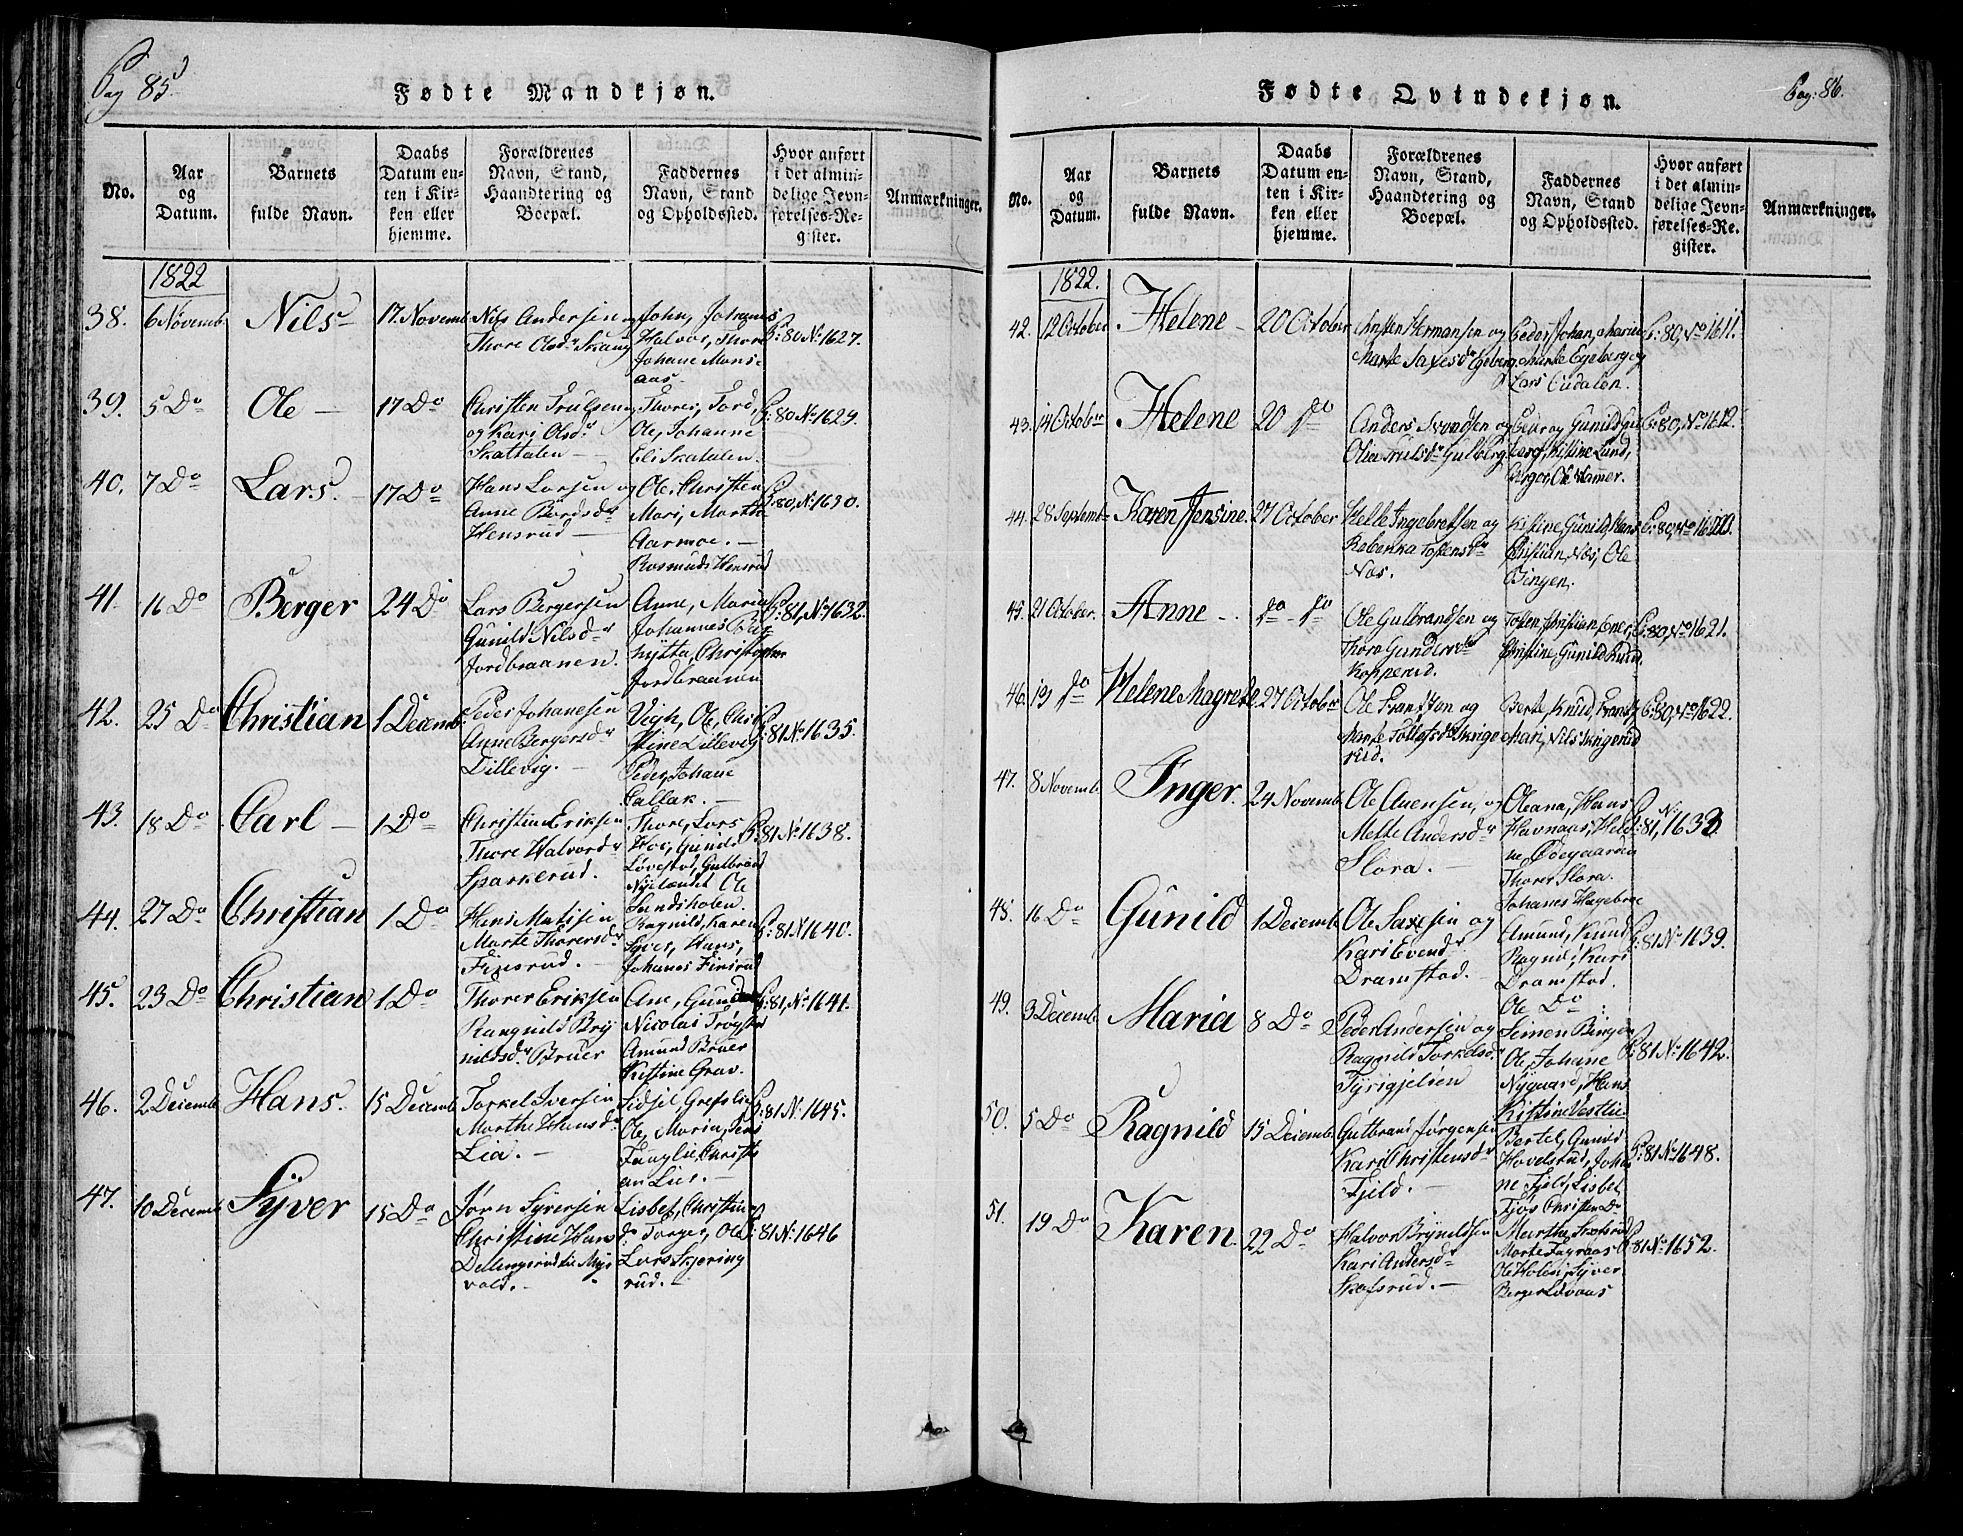 Pag 85
Fødte Mandkjøn.
No.
Aar
og
Datum.
Barnets
fulde Navn.
Daabs
Datum en-
ten i Kir-
ken eller
hjemme.
Forældrenes
Navn, Stand,
Haandtering og
Boepæl.
Faddernes
Navn, Stand
og Opholdssted.
Hvor anført
i det almin-
delige Jevn-
førelses-Re-
gister.
Anmærkninger.
1822
38. 6 Novemb. Nils 17. Novemb. Nils Andersen og
Thore Olsdr Skaug
John, Johannes
Halvor, Thore
Johane Mons-
aas.
P: 80 No 1627.
39. 5 Do Ole 17 Do Christen Trulsen
og Kari Olsdr
Skattalen
Thorer, Tord,
Ole, Johanne
Eli Skatalen.
P: 80 No 1629.
40. 7 Do Lars. 17 Do Hans Larsen og
Anne Bordsdr
Hensrud
Ole, Christen
Mari, Martha
Aarmoe.
Rosmund Hensrud
P: 80, No 1630.
41. 16 Do Berger 24 Do Lars Bergersen
Gunild Nilsdr
Jordbraanen.
Anne, Maria
Johannes
hytta, Christopher
Jordbraanen
P: 81, No 1632.
42. 25 Do Christian 1 Decemb. Peder Johanesen
Anne Bergersdr
Lillevig.
Vigh, Ole, Chri
stine Lillevig
Peder, Johane
Callak.
P: 81 No 1635.
43. 18 Do Carl 1 Do Christian Eriksen
Thore Halvordr
Sparkerud.
Thore, Lars
Hoe, Gunild
Løvestad, Gulbrand
Nylændet Ole
Sandsholen.
P: 81 No 1638.
44. 27 Do Christian 1 Do Hens Matisen
Marte Thorersdr
Finsrud.
Ragnild, Karen
Syver, Hans,
Johanes Finsrud
P: 81 No 1640.
45. 23 Do Christian 1 Do Thorer Eriksen
Rangnild Bry
nildsdr Bruer
Ane, Gunder
Nicolai Trøgstad
Amund Bruer
Kistine Grav.
P: 81, No 1641.
46. 2 Decemb. Hans. 15 Decemb. Torkel Iversen
Marthe Hansdr
Lia.
Sidsel Grefslie
Ole, Maria,
Fanglie, Christi
an Lier.
P: 81 No 1645.
47. 10 Decemb. Syver 15 Do Jørn Syversen
Christine Hans
dr
vold.
Lisbet, Christian
Torger, Ole
Lars Skjøring
rud.
P: 81 No 1646
Pag: 86.
Fødte Qvindekjøn.
No.
Aar
og
Datum.
Barnets
fulde Navn.
Daabs
Datum en-
ten i Kir-
ken eller
hjemme.
Forældrenes
Navn, Stand,
Haandtering og
Boepæl.
Faddernes
Navn, Stand
og Opholdssted.
Hvor anført
i det almin-
delige Jevn-
førelses-Re-
gister.
Anmærkninger.
1822.
42. 12 October Helene 20 October Christen Hermansen og
Marte Saxesdr Egeberg
Peder, Johan, Marie
Marte Egeberg og
Lars Oudalen.
P: 80, No 1611.
43. 14 October Helene 20 Do Anders Svendsen og
Olia Trulsdr Gulberg
Peder og Gunild
Kistine Lund,
Berger, Ole Hamer.
P: 80, No 1612.
44. 28 Septembr Karen Jensine. 27 October Helle Ingebretsen og
Rebekka Tostensdr
Næs.
Kistine Gunild, Hans
Christian, Næs, Ole
Bingen.
P: 80, No
45. 21 October. Anne Do - Do Ole Gulbrandsen og
Thora Gundersdr
Kopperud.
Tosten, Christian, Ener,
Christine, Gunild Rud.
P: 80, No 1621.
46. 19 Do Helene Magrete 27 October Ole Frantsen og
Marte Tollefsdr Skrige
rud.
Berte Knud, Frants,
Mari, Nils Skrigerud
P: 80, No 1622.
47. 8 Novemb. Inger. 24 Novemb. Ole Auensen, og
Mette Andersdr
Slora.
Oleana, Hans
Havnaas, Hele
ne Ødegaarden
Thorer Slora.
Johanes Hagebroe
P: 81, No 1633
48. 16 Do Gunild 1 Decemb. Ole Saxesen og
Kari Evendr
Dramstad.
Amund, Knud
Ragnd, Kari
Dramstad.
Ole Do
P: 81 No 1639.
49. 3 Decemb. Maria 8 Do Peder Andersen og
Ragnild Torkelsdr
Tyrigjelien
Seimen Bingen
Ole, Johane
Nygaard, Hans
Kistine Vestlie
P: 81 No 1642.
50. 5 Do Ragnild 15 Decemb. Gulbrand Jørgensen
Kari Christensdr
Fjeld.
Bertel, Gunild
Hovelsrud, Joha
ne Fjeld, Lisbet
Fjøs Christen Do
P: 81 No 1648.
51. 19 Do Karen. 22 Do Halvor Brynildsen
Kari Andersdr
Skafsrud.
Marthe, Skafsrud
Marte Fagraas
Ole Holen, Syver
Berger Ladvaas
P: 81 No 1652.